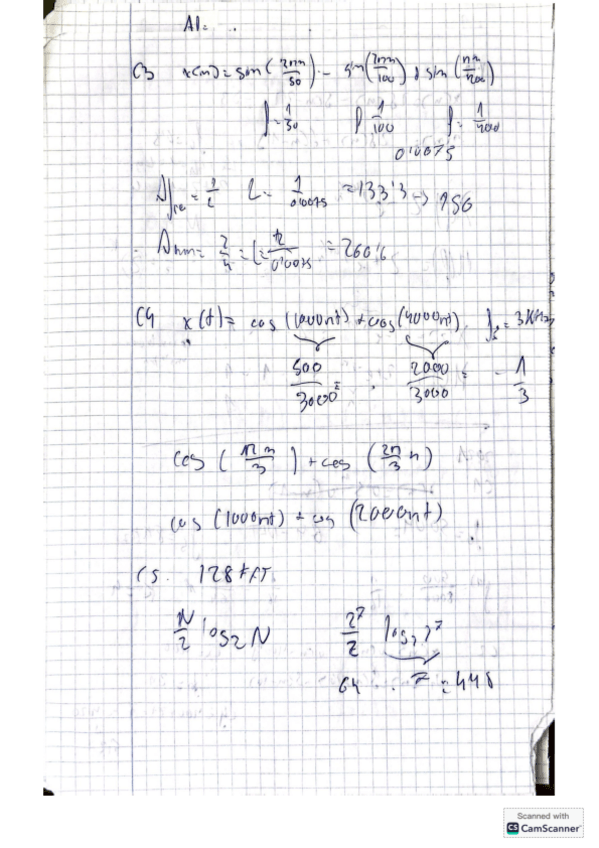 A1=
C3 x(n)=sin(2πn/50) - sin(2πn/100) + sin(πn/200)
f=1/50 f=1/100 f=1/400
0'0075
=1/L L= 1/0'0075 =133'3 → 150
= 2/L = L= 2/0'0075 =266'6
C4 x(t)= cos(1000πt)+cos(4000πt) fs=3KHz
500/3000 = . 2000/3000 = - 1/3
cos(πn/3)+cos(2π/3 n)
cos(1000πt)+cos(2000πt)
C5. 128 FFT
N/2 log2 N 2^7/2 log2 2^7
64 . 7 = 448
Scanned with
CS CamScanner